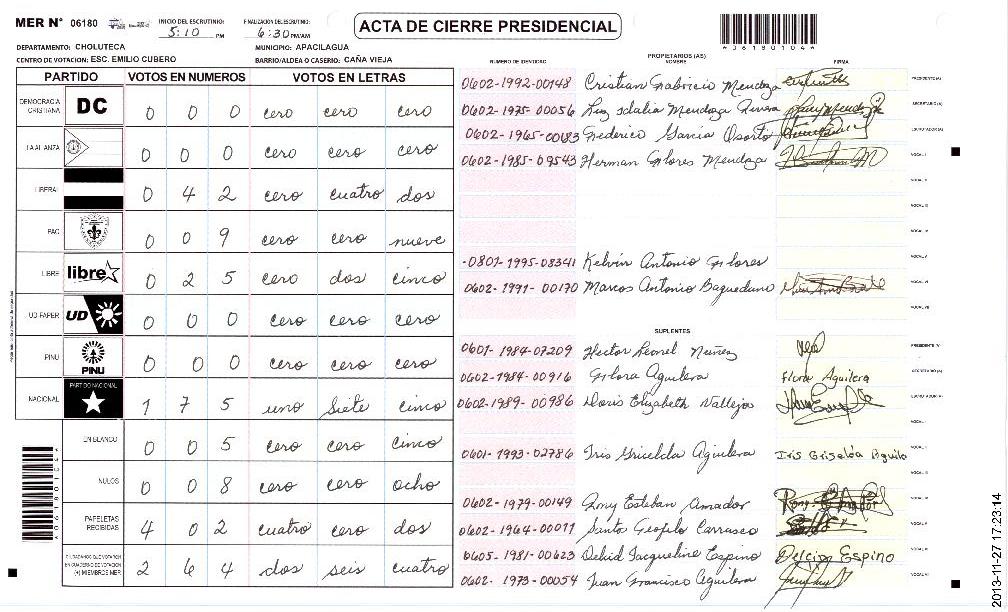 MER N° 06180 INICIO DEL ESCRUTINIO: 5:10 PM FINALIZACIÓN DEL ESCRUTINIO: 6:30 PM/AM ACTA DE CIERRE PRESIDENCIAL
DEPARTAMENTO: CHOLUTECA MUNICIPIO: APACILAGUA
CENTRO DE VOTACION: ESC. EMILIO CUBERO BARRIO/ALDEA O CASERIO: CAÑA VIEJA
*06180104*
PARTIDO VOTOS EN NUMEROS VOTOS EN LETRAS
DEMOCRACIA CRISTIANA DC 0 0 0 cero cero cero
LA ALIANZA 0 0 0 cero cero cero
LIBERAL 0 4 2 cero cuatro dos
PAC 0 0 9 cero cero nueve
LIBRE libre 0 2 5 cero dos cinco
UD FAPER UD 0 0 0 cero cero cero
PINU PINU 0 0 0 cero cero cero
NACIONAL PARTIDO NACIONAL 1 7 5 uno siete cinco
EN BLANCO 0 0 5 cero cero cinco
NULOS 0 0 8 cero cero ocho
PAPELETAS RECIBIDAS 4 0 2 cuatro cero dos
CIUDADANOS QUE VOTARON EN CUADERNO DE VOTACION (+) MIEMBROS MER 2 6 4 dos seis cuatro
PROPIETARIOS (AS)
NUMERO DE IDENTIDAD NOMBRE FIRMA
0602-1992-00148 Cristian Gabricio Mendoza PRESIDENTE (A)
0602-1975-00056 Luz Idalia Mendoza SECRETARIO (A)
0602-1965-00083 Frederico Garcia Osorto ESCRUTADOR (A)
0602-1985-09543 Herman Flores Mendoza VOCAL I
VOCAL II
VOCAL III
VOCAL IV
0801-1995-08341 Kelvin Antonio Flores VOCAL V
0602-1991-00170 Marcos Antonio Baquedano VOCAL VI
VOCAL VII
SUPLENTES
0601-1984-07209 Hector Leonel Nuñez PRESIDENTE (A)
0602-1984-00916 Flora Aguilera Flora Aguilera SECRETARIO (A)
0602-1989-00986 Doris Elizabeth Vallejo ESCRUTADOR (A)
VOCAL I
0601-1993-02786 Iris Griselda Aguilera Iris Griselda Aguile VOCAL II
VOCAL III
0602-1979-00149 Rony Esteban Amador VOCAL IV
0602-1964-00011 Santo Carrasco VOCAL V
0605-1981-00623 Jacqueline Espino Delcid Espino VOCAL VI
0602-1973-00054 Juan Francisco Aguilera VOCAL VII
2013-11-27 17:23:14